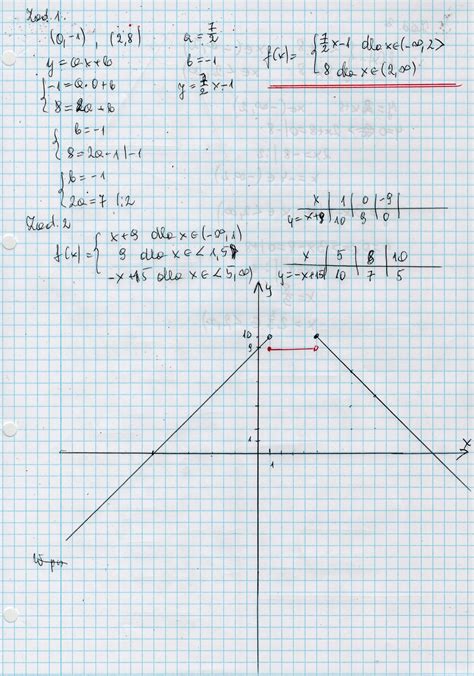 Zad. 1.
(0,-1) , (2,8)
y = ax+b
{-1 = a·0+b
{8 = 2a+b
{b = -1
{8 = 2a-1 |-1
{b = -1
{2a = 7 |:2
a = 7/2
b = -1
y = 7/2x-1
f(x) = {7/2x-1 dla x∈(-∞,2>
{8 dla x∈(2,∞)
Zad. 2
f(x) = {x+9 dla x∈(-∞,1)
{9 dla x∈<1,5)
{-x+15 dla x∈<5,∞)
x | 1 | 0 | -9
y=x+9 | 10 | 9 | 0
x | 5 | 8 | 10
y=-x+15 | 10 | 7 | 5
y
10
9
1
x
1